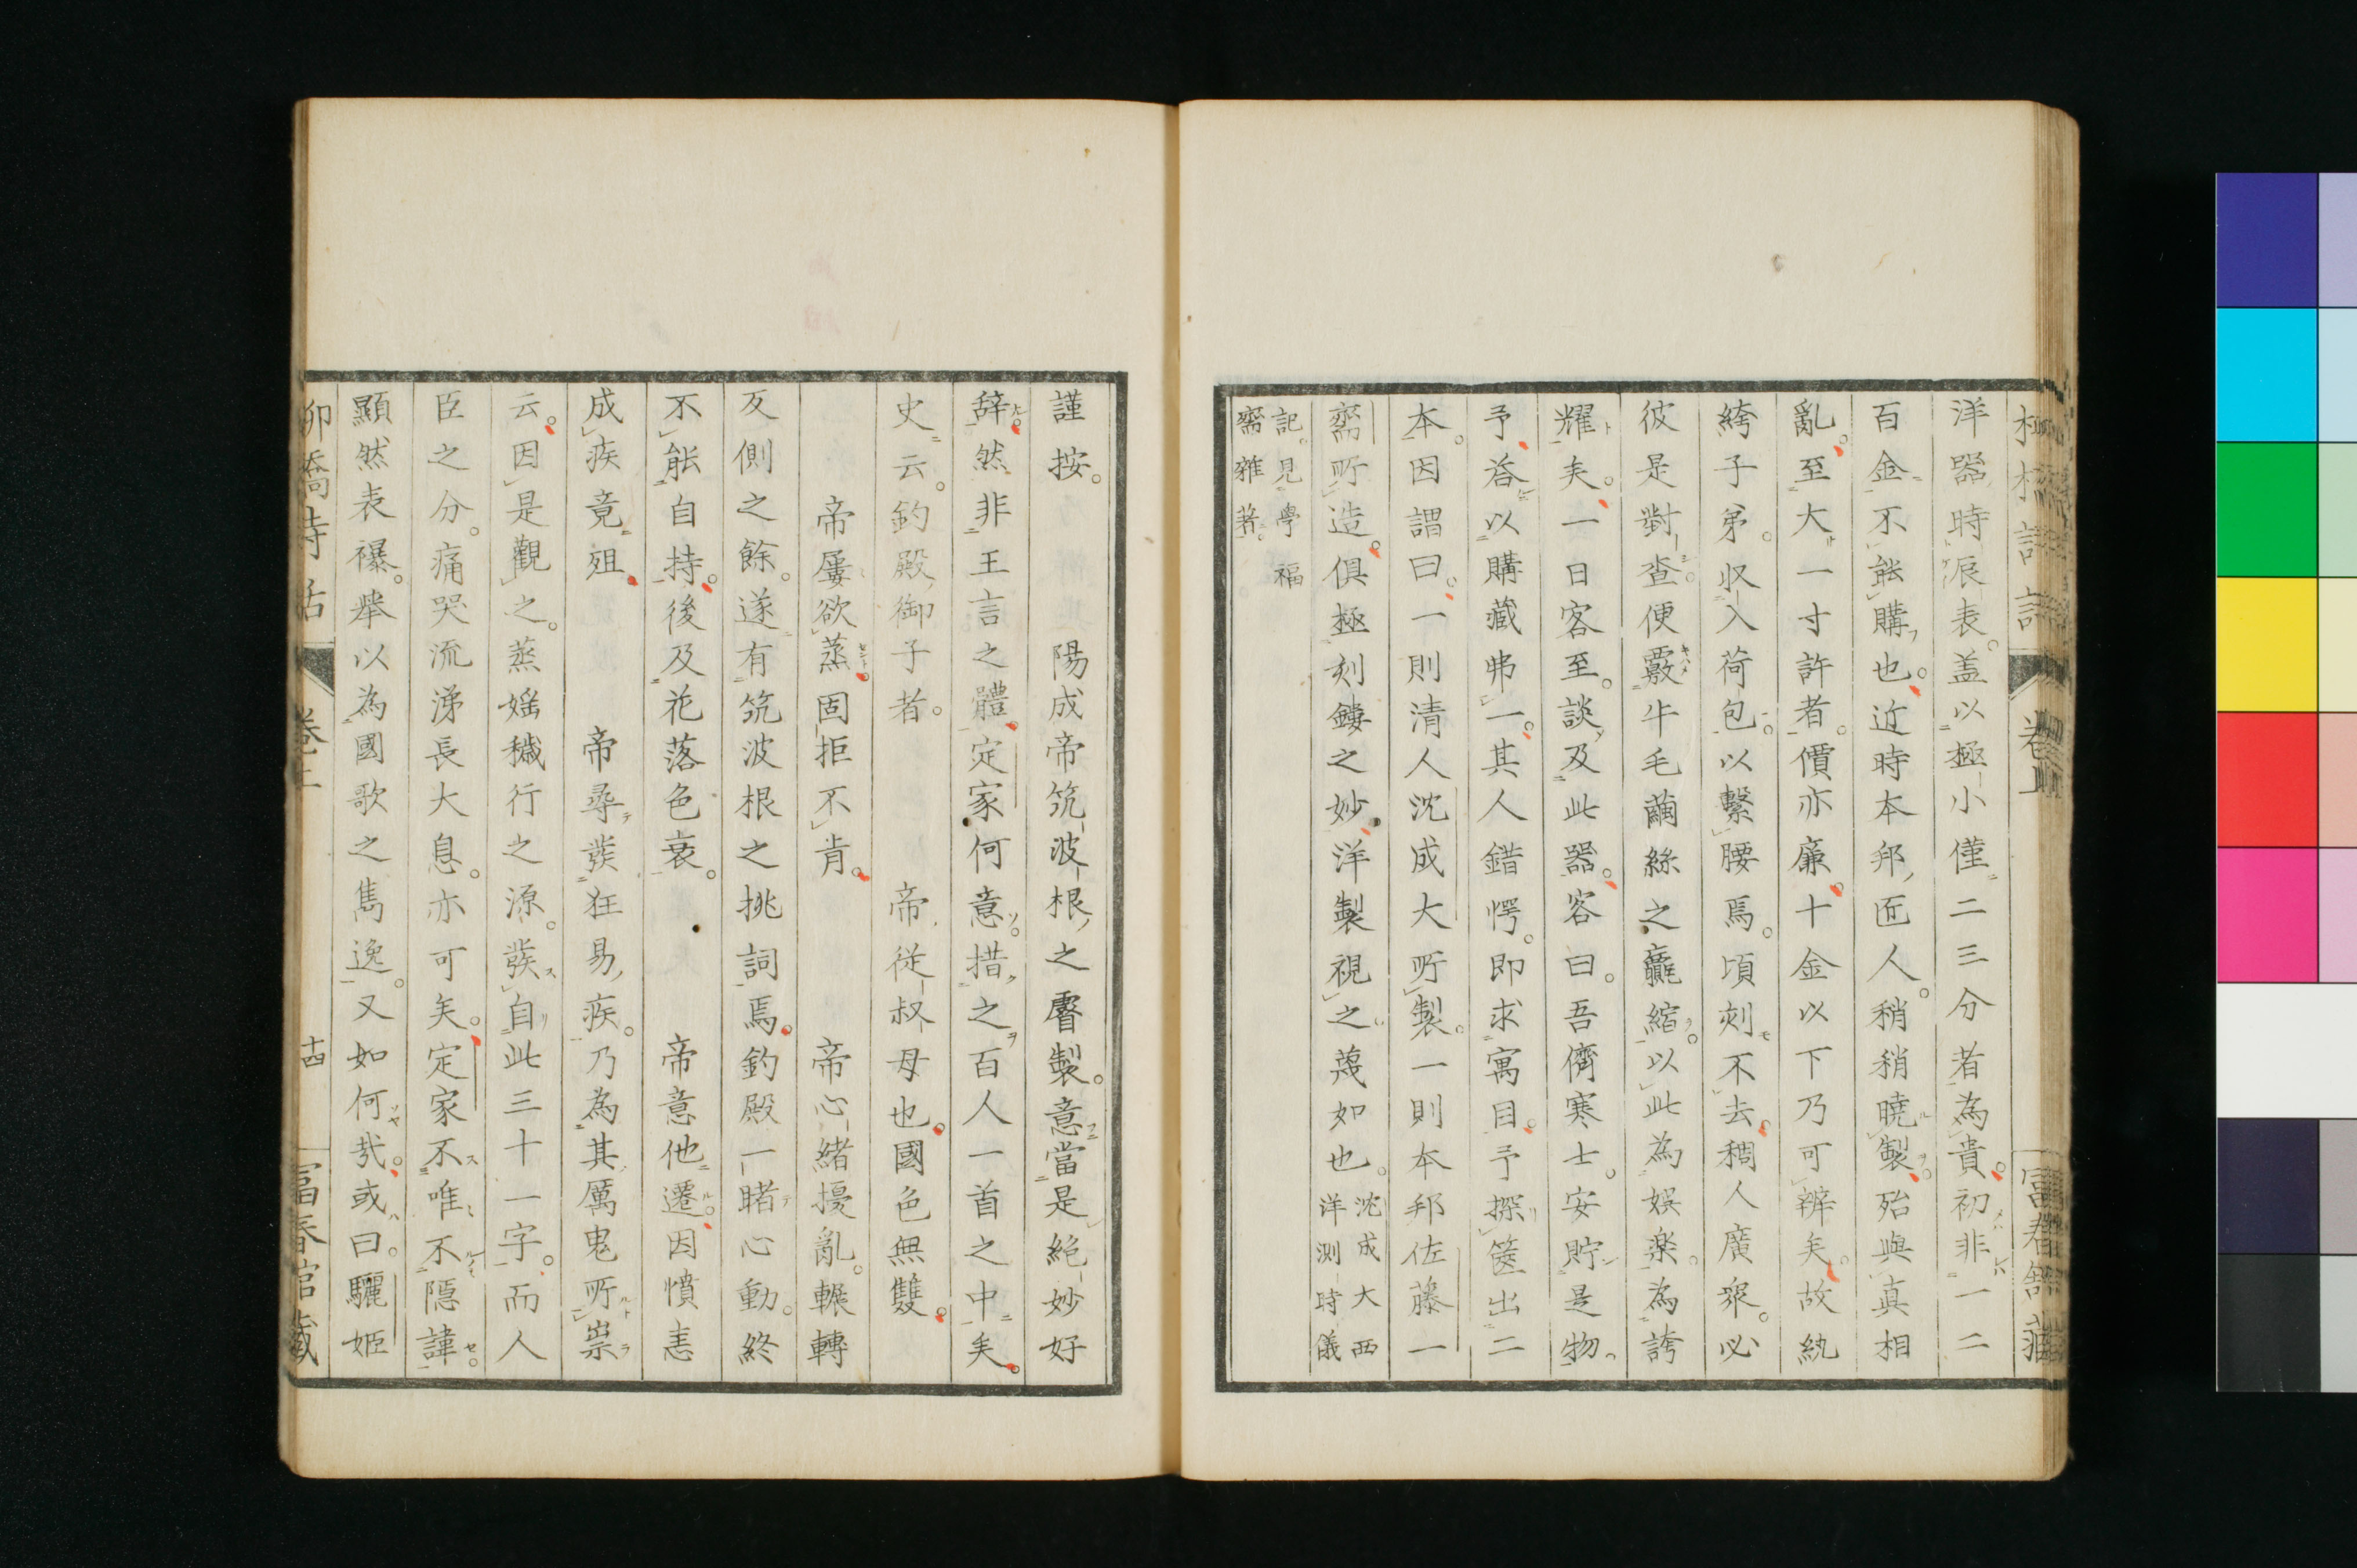 洋器時辰表。盖以極小僅二三分者為貴。初非一二
百金不能購也。近時本邦匠人。稍稍曉製。殆與真相
亂。至大一寸許者。價亦廉。十金以下乃可辨矣。故紈
絝子弟。収入荷包。以繫腰焉。頃刻不去。稠人廣眾。必
彼是對查。便覈牛毛繭絲之贏縮。以此為娯楽。為誇
耀矣。一日客至。談及此器。客曰。吾儕寒士。安貯是物。
予答以購藏弗一。其人錯愕。即求寓目。予探篋出二
本。因謂曰。一則清人沈成大所製。一則本邦佐藤一
齋所造。俱極刻鏤之妙。洋製視之蔑如也。沈成大西洋測時儀
記。見學福齋雜著。
謹按。陽成帝筑波根之睿製。意當是絕妙好
辞。然非王言之體。定家何意。措之百人一首之中矣。
史云。釣殿御子者。帝從叔母也。國色無雙。
帝屢欲蒸。固拒不肯。帝心緒擾亂。輾轉
反側之餘。遂有筑波根之挑詞焉。釣殿一睹心動。終
不能自持。後及花落色衰。帝意他遷。因憤恚
成疾竟殂。帝尋發狂易疾。乃為其厲鬼所崇
云。因是觀之。蒸媱穢行之源。發自此三十一字。而人
臣之分。痛哭流涕長大息。亦可矣。定家不唯不隱諱。
顯然表襮。舉以為國歌之雋逸。又如何哉。或曰。驪姫
卷上
十四